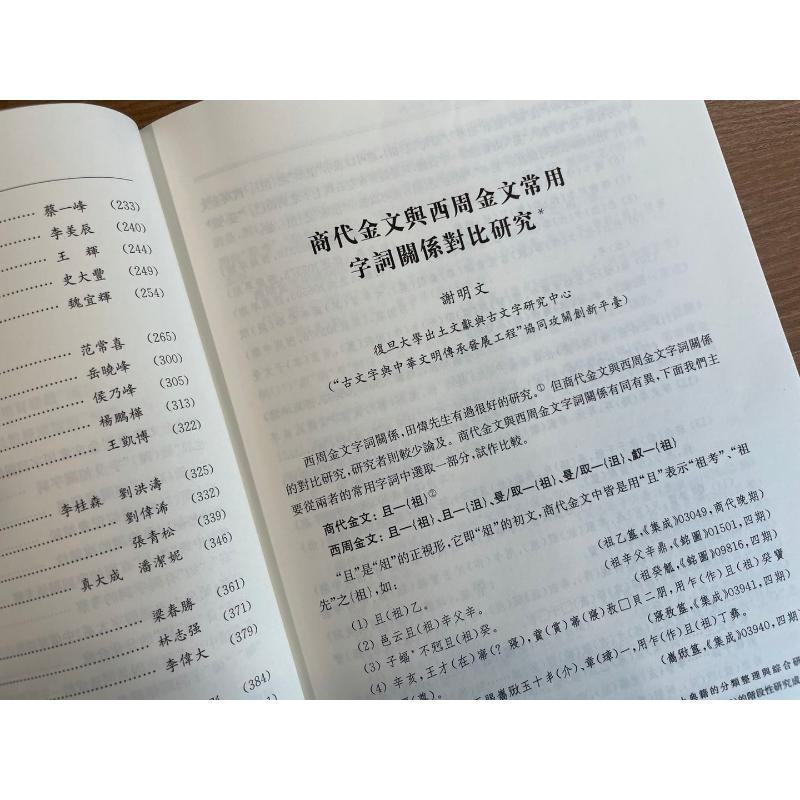 蔡一峰 (233)
李美辰 (240)
王 輝 (244)
史大豐 (249)
魏宜輝 (254)
范常喜 (265)
岳曉峰 (300)
侯乃峰 (305)
楊鵬樺 (313)
王凱博 (322)
李桂森 劉洪濤 (325)
劉偉浠 (332)
張青松 (339)
真大成 潘潔妮 (346)
梁春勝 (361)
林志强 (371)
李偉大 (379)
(384)
商代金文與西周金文常用
字詞關係對比研究*
謝明文
復旦大學出土文獻與古文字研究中心
(“古文字與中華文明傳承發展工程”協同攻關創新平臺)
西周金文字詞關係,田煒先生有過很好的研究。① 但商代金文與西周金文字詞關係
的對比研究,研究者則較少論及。商代金文與西周金文字詞關係有同有異,下面我們主
要從兩者的常用字詞中選取一部分,試作比較。
商代金文:且—{祖}②
西周金文:且—{祖}、且—{沮}、叟/取—{祖}、叟/取—{沮}、䖒—{祖}
“且”是“俎”的正視形,它即“俎”的初文,商代金文中皆是用“且”表示“祖考”、“祖
先”之{祖},如:
(1) 且(祖)乙。 (祖乙簋,《集成》03049,商代晚期)
(2) 邑云且(祖)辛父辛。 (祖辛父辛鼎,《銘圖》01501,四期)
(3) 子蝠·不𠨘且(祖)癸。 (祖癸觚,《銘圖》09816,四期)
(4) 辛亥,王才(在)帚(? 寢),賞(賞)帚(寢)孜□貝二朋,用乍(作)且(祖)癸寶
(寢孜簋,《集成》03941,四期)
五十丰(介)、章(璋)一,用乍(作)且(祖)丁彝。
《集成》03940,四期
典籍的分類整理與綜合研
的階段性研究成